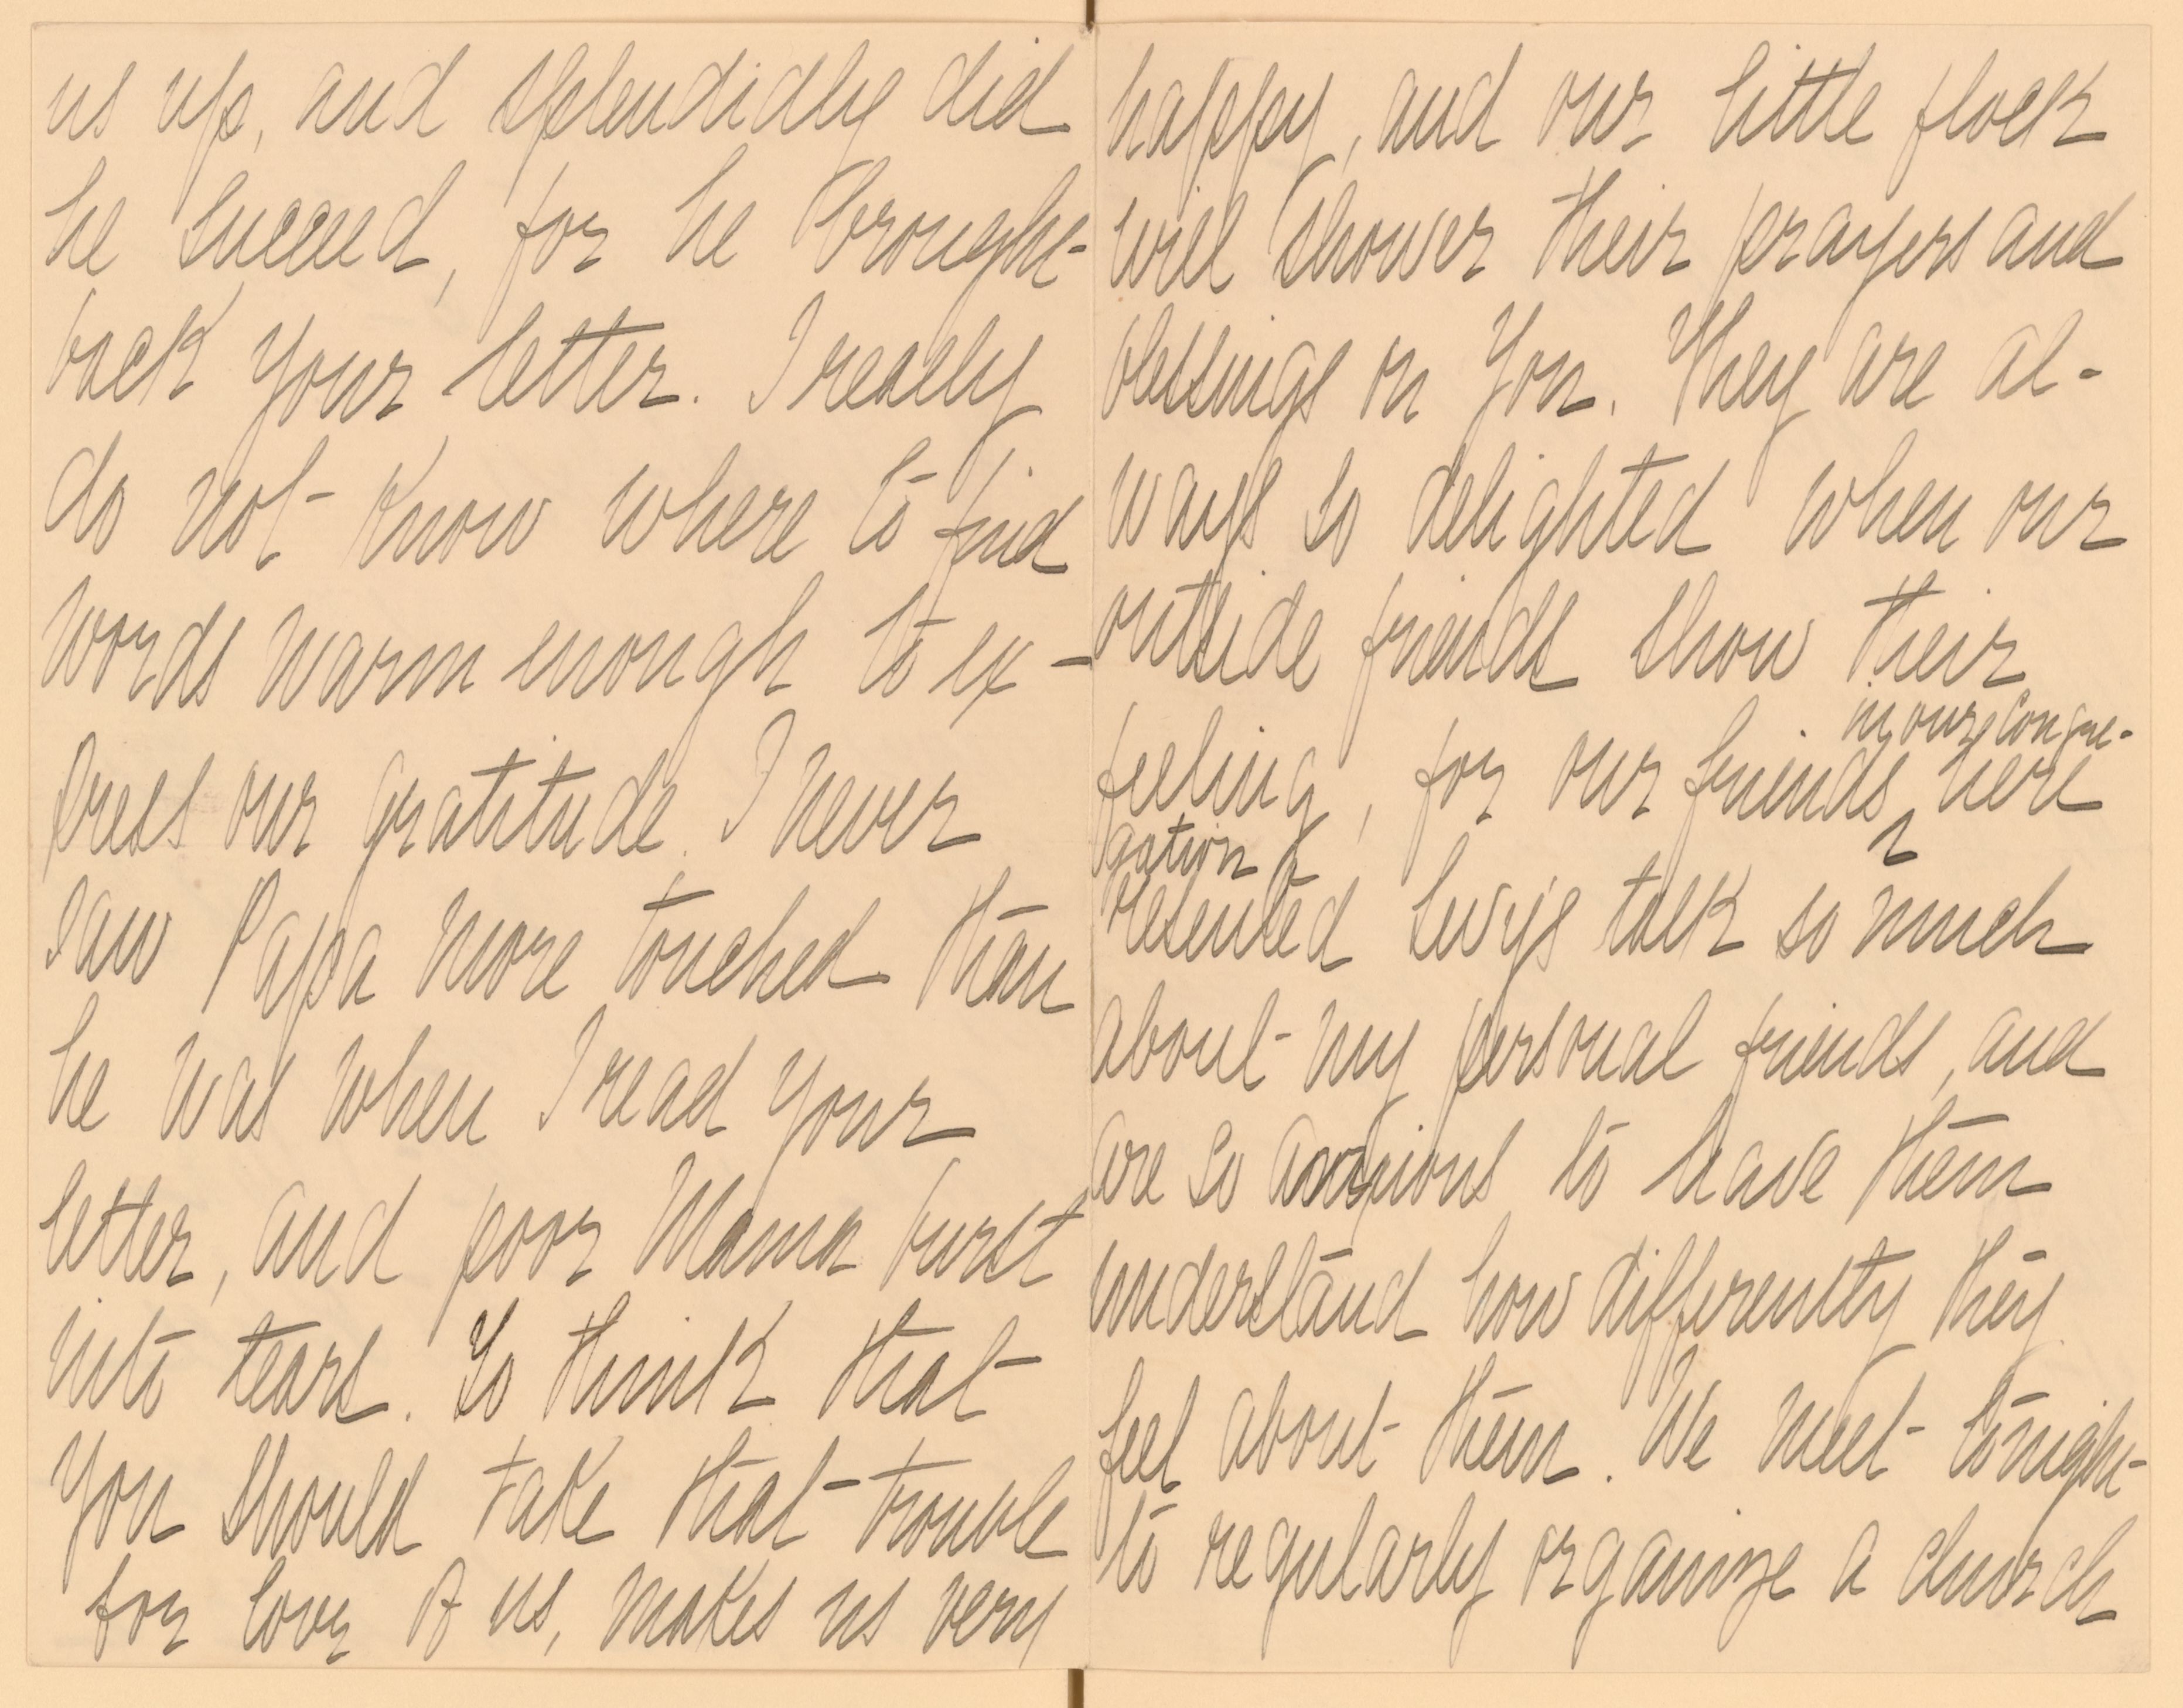 us up, and splendidly did
he succeed, for he brought
back your letter. I really
do not know where to find
words warm enough to ex-
press our gratitude. I never
saw Papa more touched than
he was when I read your
letter, and poor Mama burst
into tears. To think that
you should take that trouble
for love of us, makes us very
happy, and our little flock
will shower their prayers and
blessings on you. They are al-
ways so delighted when our
outside friends show their
feeling, for our friends here
in our congre-
gation
resented Levy's talk so much
about my personal friends, and
are so anxious to have them
understand how differently they
feel about them. We meet tonight
to regularly organize a church